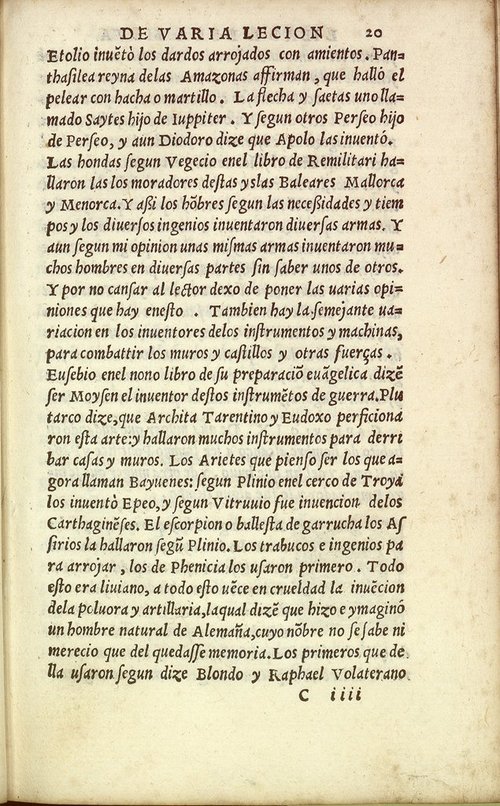 DE VARIA LECION 20
Etolio inuẽtò los dardos arrojados con amientos. Pan=
thaſilea reyna delas Amazonas affirman, que hallò el
pelear con hacha o martillo. La flecha y ſaetas uno lla=
mado Saytes hijo de Iuppiter. Y ſegun otros Perſeo hijo
de Perſeo, y aun Diodoro dize que Apolo las inuentò.
Las hondas ſegun Vegecio enel libro de Remilitari ha=
llaron las los moradores deſtas yslas Baleares Mallorca
y Menorca. Y aßi los hõbres ſegun las neceßidades y tiem
pos y los diuerſos ingenios inuentaron diuerſas armas. Y
aun ſegun mi opinion unas miſmas armas inuentaron mu=
chos hombres en diuerſas partes ſin ſaber unos de otros.
Y por no canſar al lector dexo de poner las uarias opi=
niones que hay eneſto . Tambien hay la ſemejante ua=
riacion en los inuentores delos inſtrumentos y machinas,
para combattir los muros y caſtillos y otras fuerças.
Euſebio enel nono libro de ſu preparaciõ euãgelica dizẽ
ſer Moyſen el inuentor deſtos inſtrumẽtos de guerra. Plu
tarco dize, que Archita Tarentino y Eudoxo perficiona
ron eſta arte: y hallaron muchos inſtrumentos para derri
bar caſas y muros. Los Arietes que pienſo ſer los que a=
gora llaman Bayuenes: ſegun Plinio enel cerco de Troya
los inuentò Epeo, y ſegun Vitruuio fue inuencion delos
Carthagineſes. El eſcorpion o balleſta de garrucha los Aſ
ſirios la hallaron ſegũ Plinio. Los trabucos e ingenios pa
ra arrojar, los de Phenicia los uſaron primero. Todo
eſto era liuiano, a todo eſto uẽce en crueldad la inuẽcion
dela poluora y artillaria, laqual dizẽ que hizo e ymaginò
un hombre natural de Alemaña, cuyo nõbre no ſe ſabe ni
merecio que del quedaſſe memoria. Los primeros que de
lla uſaron ſegun dize Blondo y Raphael Volaterano
C iiii